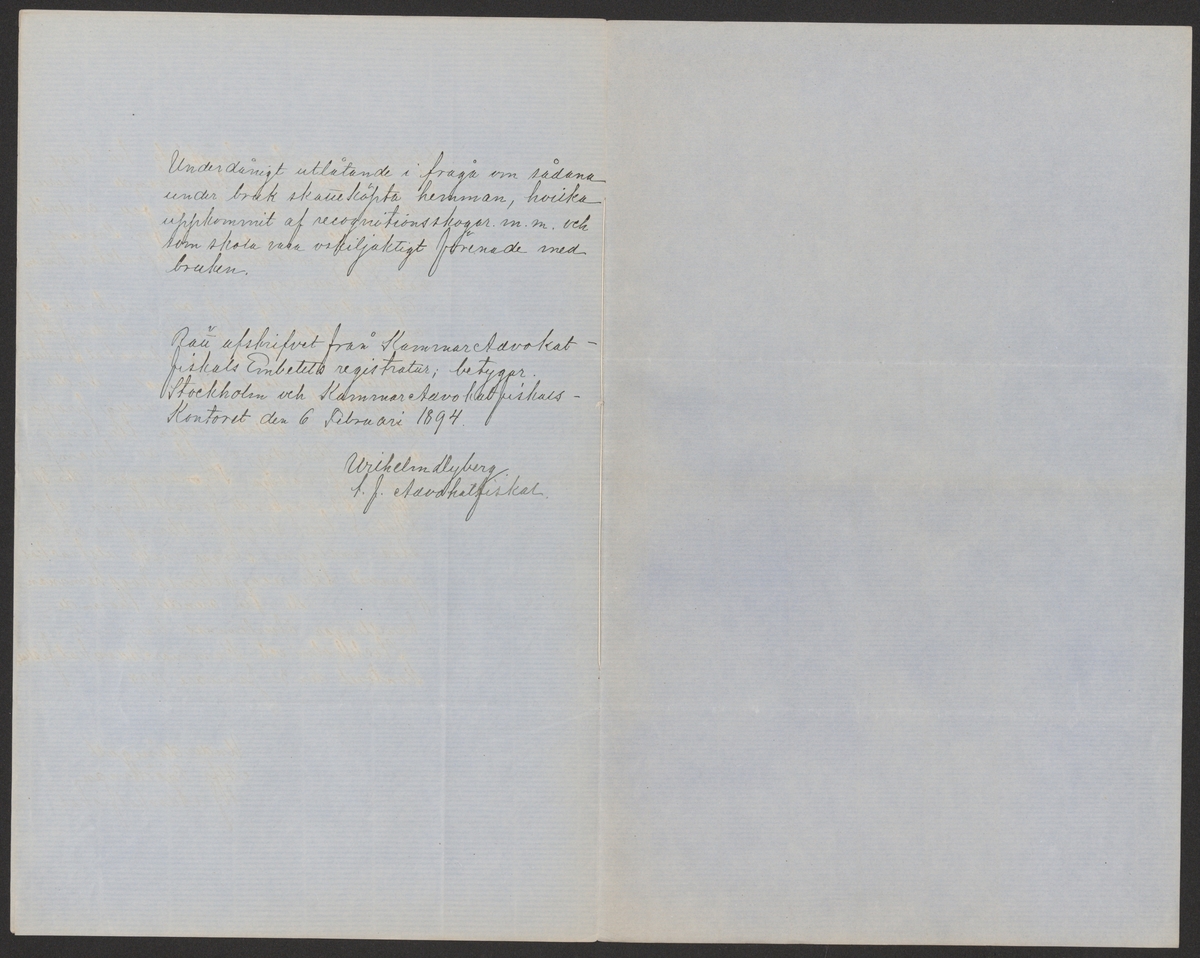 Underdånigt utlåtande i fråga om sådana
under bruk skatteköpta hemman, hvilka
uppkommit af recognitionsskogar m. m. och
som skola vara oskiljaktigt förenade med
bruken.
Rätt afskrifvet från KammarAdvokat-
fiskals Embetets registratur; betygar.
Stockholm och KammarAdvokatfiskals-
Kontoret den 6 Februari 1894.
t. f. Advokatfiskal.